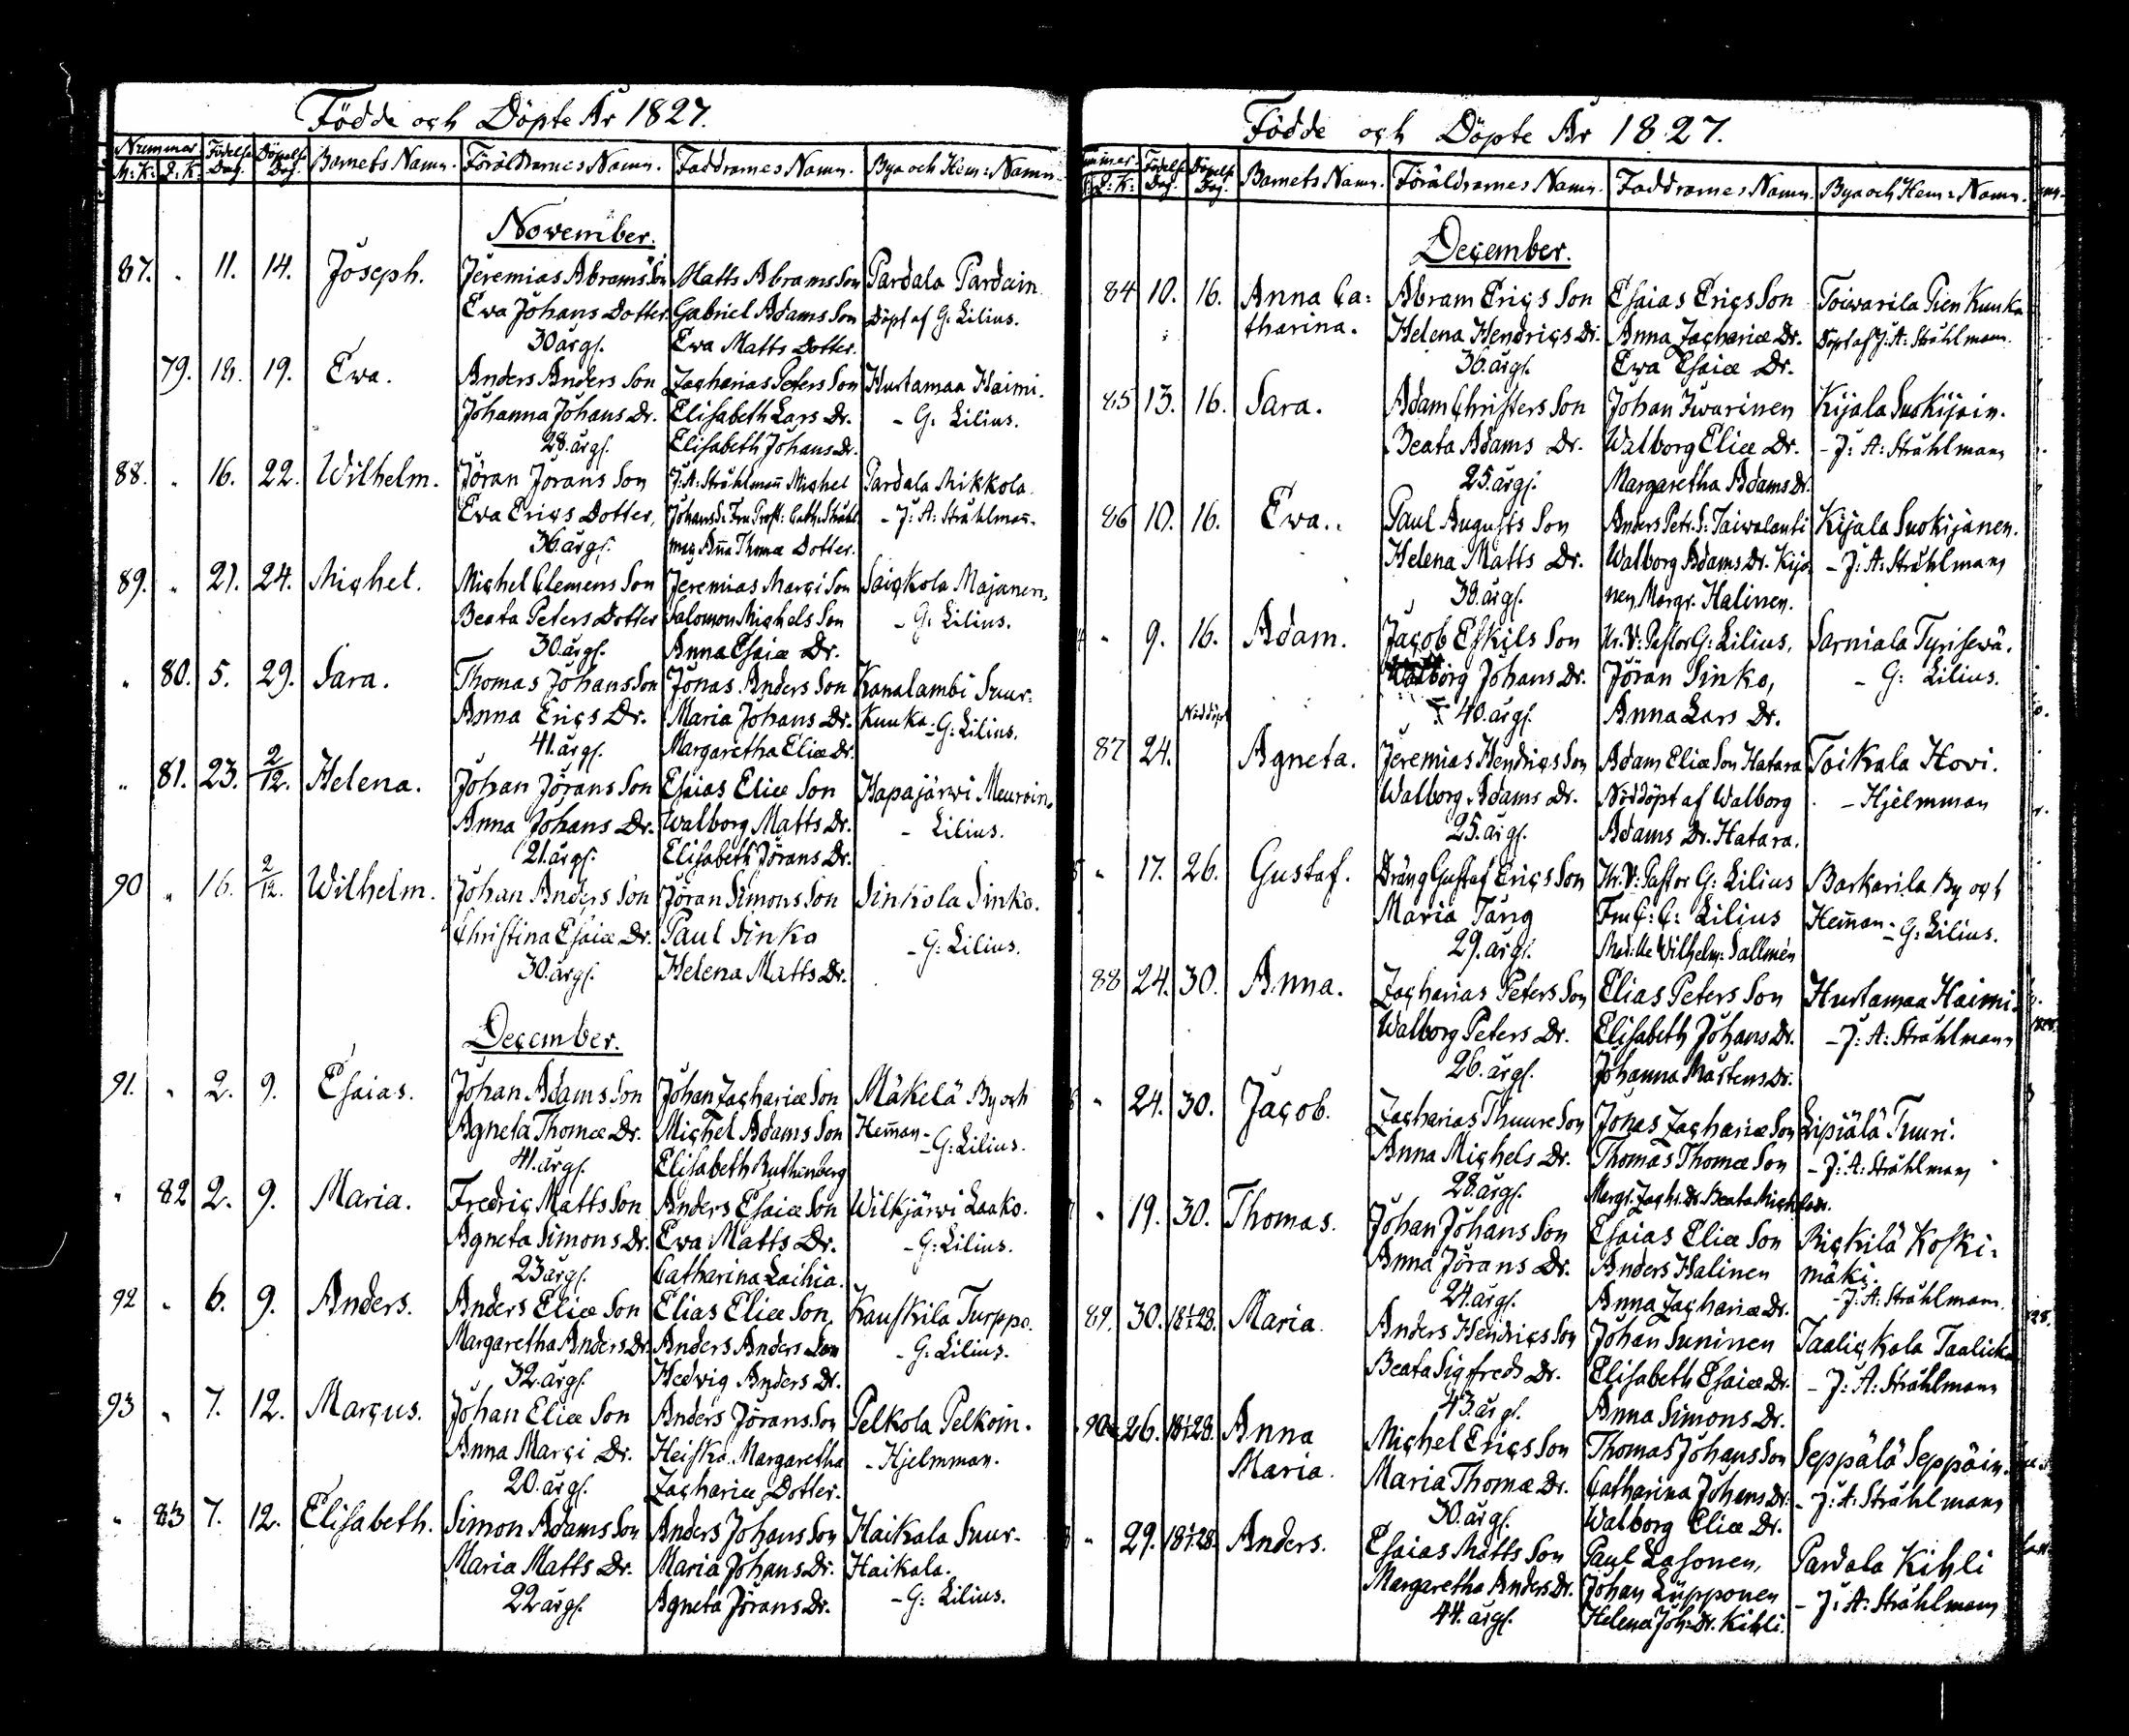 Födde och Döpte År 1827.
Nummer Födelse Döpelse Barnets Namn. Föräldrarnes Namn. Faddrarnes Namn. Bya och Hem: Namn.
M: K: Q: K: Dag. Dag.
November.
87. " 11. 14. Joseph. Jeremias Abrams Son Matts Abrams Son Pardala Pardain
Ewa Johans Dotter. Gabriel Adams Son Döpt af G: Lilius.
30 årgs. Ewa Matts Dotter.
79. 18. 19. Ewa. Anders Anders Son Zacharias Peters Son Hurtamaa Haimi.
Johanna Johans Dr. Elisabeth Lars Dr. - G: Lilius.
28. årgs. Elisabeth Johans Dr.
88. " 16. 22. Wilhelm. Jöran Jörans Son J: A: Stråhlman̄ Michel Pardala Mikkola.
Ewa Erics Dotter, Johans S: Fru Prost: Cath: Stråhl - J: A: Stråhlman̄.
36. årgs. An̄a Thomæ Dotter.
89. " 21. 24. Michel. Michel Clemens Son Jeremias Marci Son Saickola Majanen.
Beata Peters Dotter Salomon Michels Son - G: Lilius.
30. årgs. Anna Esaiæ Dr.
" 80. 5. 29. Sara. Thomas Johans Son Jonas Anders Son Kanalambi Suur:
Anna Erics Dr. Maria Johans Dr. Kuuka - G: Lilius.
41. årgs. Margaretha Eliæ Dr.
" 81. 23. 2/12. Helena. Johan Jörans Son Esaias Eliæ Son Hapajärwi Meuroin.
Anna Johans Dr. Walborg Matts Dr. - Lilius.
21. årgs. Elisabeth Jörans Dr.
90 " 16. 2/12. Wilhelm. Johan Anders Son Jöran Simons Son Sinkola Sinko.
Christina Esaiæ Dr. Paul Sinko - G: Lilius.
30. årgs. Helena Matts Dr.
December.
91. " 2. 9. Esaias. Johan Adams Son Johan Zachariæ Son Mäkelä By och
Agneta Thomæ Dr. Michel Adams Son Hem̄an - G: Lilius.
41. årgs. Elisabeth Ruthenberg
" 82 2. 9. Maria. Fredric Matts Son Anders Esaiæ Son Wilkjärwi Laako.
Agneta Simons Dr. Ewa Matts Dr. - G: Lilius.
23 årgs. Catharina Laihia.
92 " 6. 9. Anders. Anders Eliæ Son Elias Eliæ Son, Kauskila Turppo.
Margaretha Anders Dr. Anders Anders Son - G: Lilius.
32. årgs. Hedvig Anders Dr.
93 " 7. 12. Marcus. Johan Eliæ Son Anders Jörans Son Pelkola Pelkoin.
Anna Marci Dr. Heiska. Margaretha - Hjelmman.
20. årgs. Zachariæ Dotter.
" 83 7. 12. Elisabeth. Simon Adams Son Anders Johans Son Haikala Suur-
Maria Matts Dr. Maria Johans Dr. Haikala.
22 årgs. Agneta Jörans Dr. - G: Lilius.
Födde och Döpte År 1827.
Q: K: Födelse Dag. Döpelse Dag. Barnets Namn. Föräldrarnes Namn. Faddrarnes Namn. Bya och Hem: Namn.
December.
84 10. 16. Anna Ca: Abram Erics Son Esaias Erics Son Toiwarila Pien Kuuka
tharina. Helena Hendrics Dr. Anna Zachariæ Dr. Döpt af J: A: Stråhlman.
36. årgs. Ewa Esaiæ Dr.
85 13. 16. Sara. Adam Christers Son Johan Iwarinen Kijala Suokijain.
Beata Adams Dr. Walborg Eliæ Dr. - J: A: Stråhlman
25. årgs. Margaretha Adams Dr.
86 10. 16. Ewa. Paul Augusts Son Anders Petr: S: Taiwalanti Kijala Suokijanen.
Helena Matts Dr. Walborg Adams Dr. Kijo - J: A: Stråhlman
38. årgs. nen, Margr. Halinen.
" 9. 16. Adam. Jacob Eskils Son Hr. V: Pastor G: Lilius, Sarniala Tyrisewä.
Walborg Johans Dr. Jöran Sinko, - G: Lilius.
40. årgs. Anna Lars Dr.
Nöddöpt
87 24. Agneta. Jeremias Hendrics Son Adam Eliæ Son Hatara Toikala Hovi.
Walborg Adams Dr. Nöddöpt af Walborg - Hjelmman
25. årgs. Adams Dr. Hatara.
" 17. 26. Gustaf. Dräng Gustaf Erics Son Hr. V: Pastor G: Lilius Barkarila By och
Maria Tång Fru C: C: Lilius Hem̄an - G: Lilius.
29. årgs. Wilhelm: Sallmén
88 24. 30. Anna. Zacharias Peters Son Elias Peters Son Hurtamaa Haimi.
Walborg Peters Dr. Elisabeth Johans Dr. - J: A: Stråhlman
26. årgs. Johanna Mårtens Dr.
" 24. 30. Jacob. Zacharias Thuure Son Jonas Zachariæ Son Lipiälä Tuuri.
Anna Michels Dr. Thomas Thomæ Son - J: A: Stråhlman
28. årgs. Margr. Zachr. Dr. Beata Michels Dr.
" 19. 30. Thomas. Johan Johans Son Esaias Eliæ Son Rickilä Koski:
Anna Jörans Dr. Anders Halinen mäki.
24. årgs. Anna Zachariæ Dr. - J: A: Stråhlman.
89. 30. 18 1/1 28. Maria. Anders Hendrics Son Johan Suninen Taalickola Taalicka
Beata Sigfreds Dr. Elisabeth Esaiæ Dr. - J: A: Stråhlman
43. årgs. Anna Simons Dr.
90 26. 18 1/1 28. Anna Michel Erics Son Thomas Johans Son Seppälä Seppäin.
Maria. Maria Thomæ Dr. Catharina Johans Dr. - J: A: Stråhlman
30. årgs. Walborg Eliæ Dr.
" 29. 18 1/1 28. Anders. Esaias Matts Son Paul Lasonen, Pardala Kihli
Margaretha Anders Dr. Johan Lüpponen - J: A: Stråhlman
44. årgs. Helena Joh: Dr. Kihli.